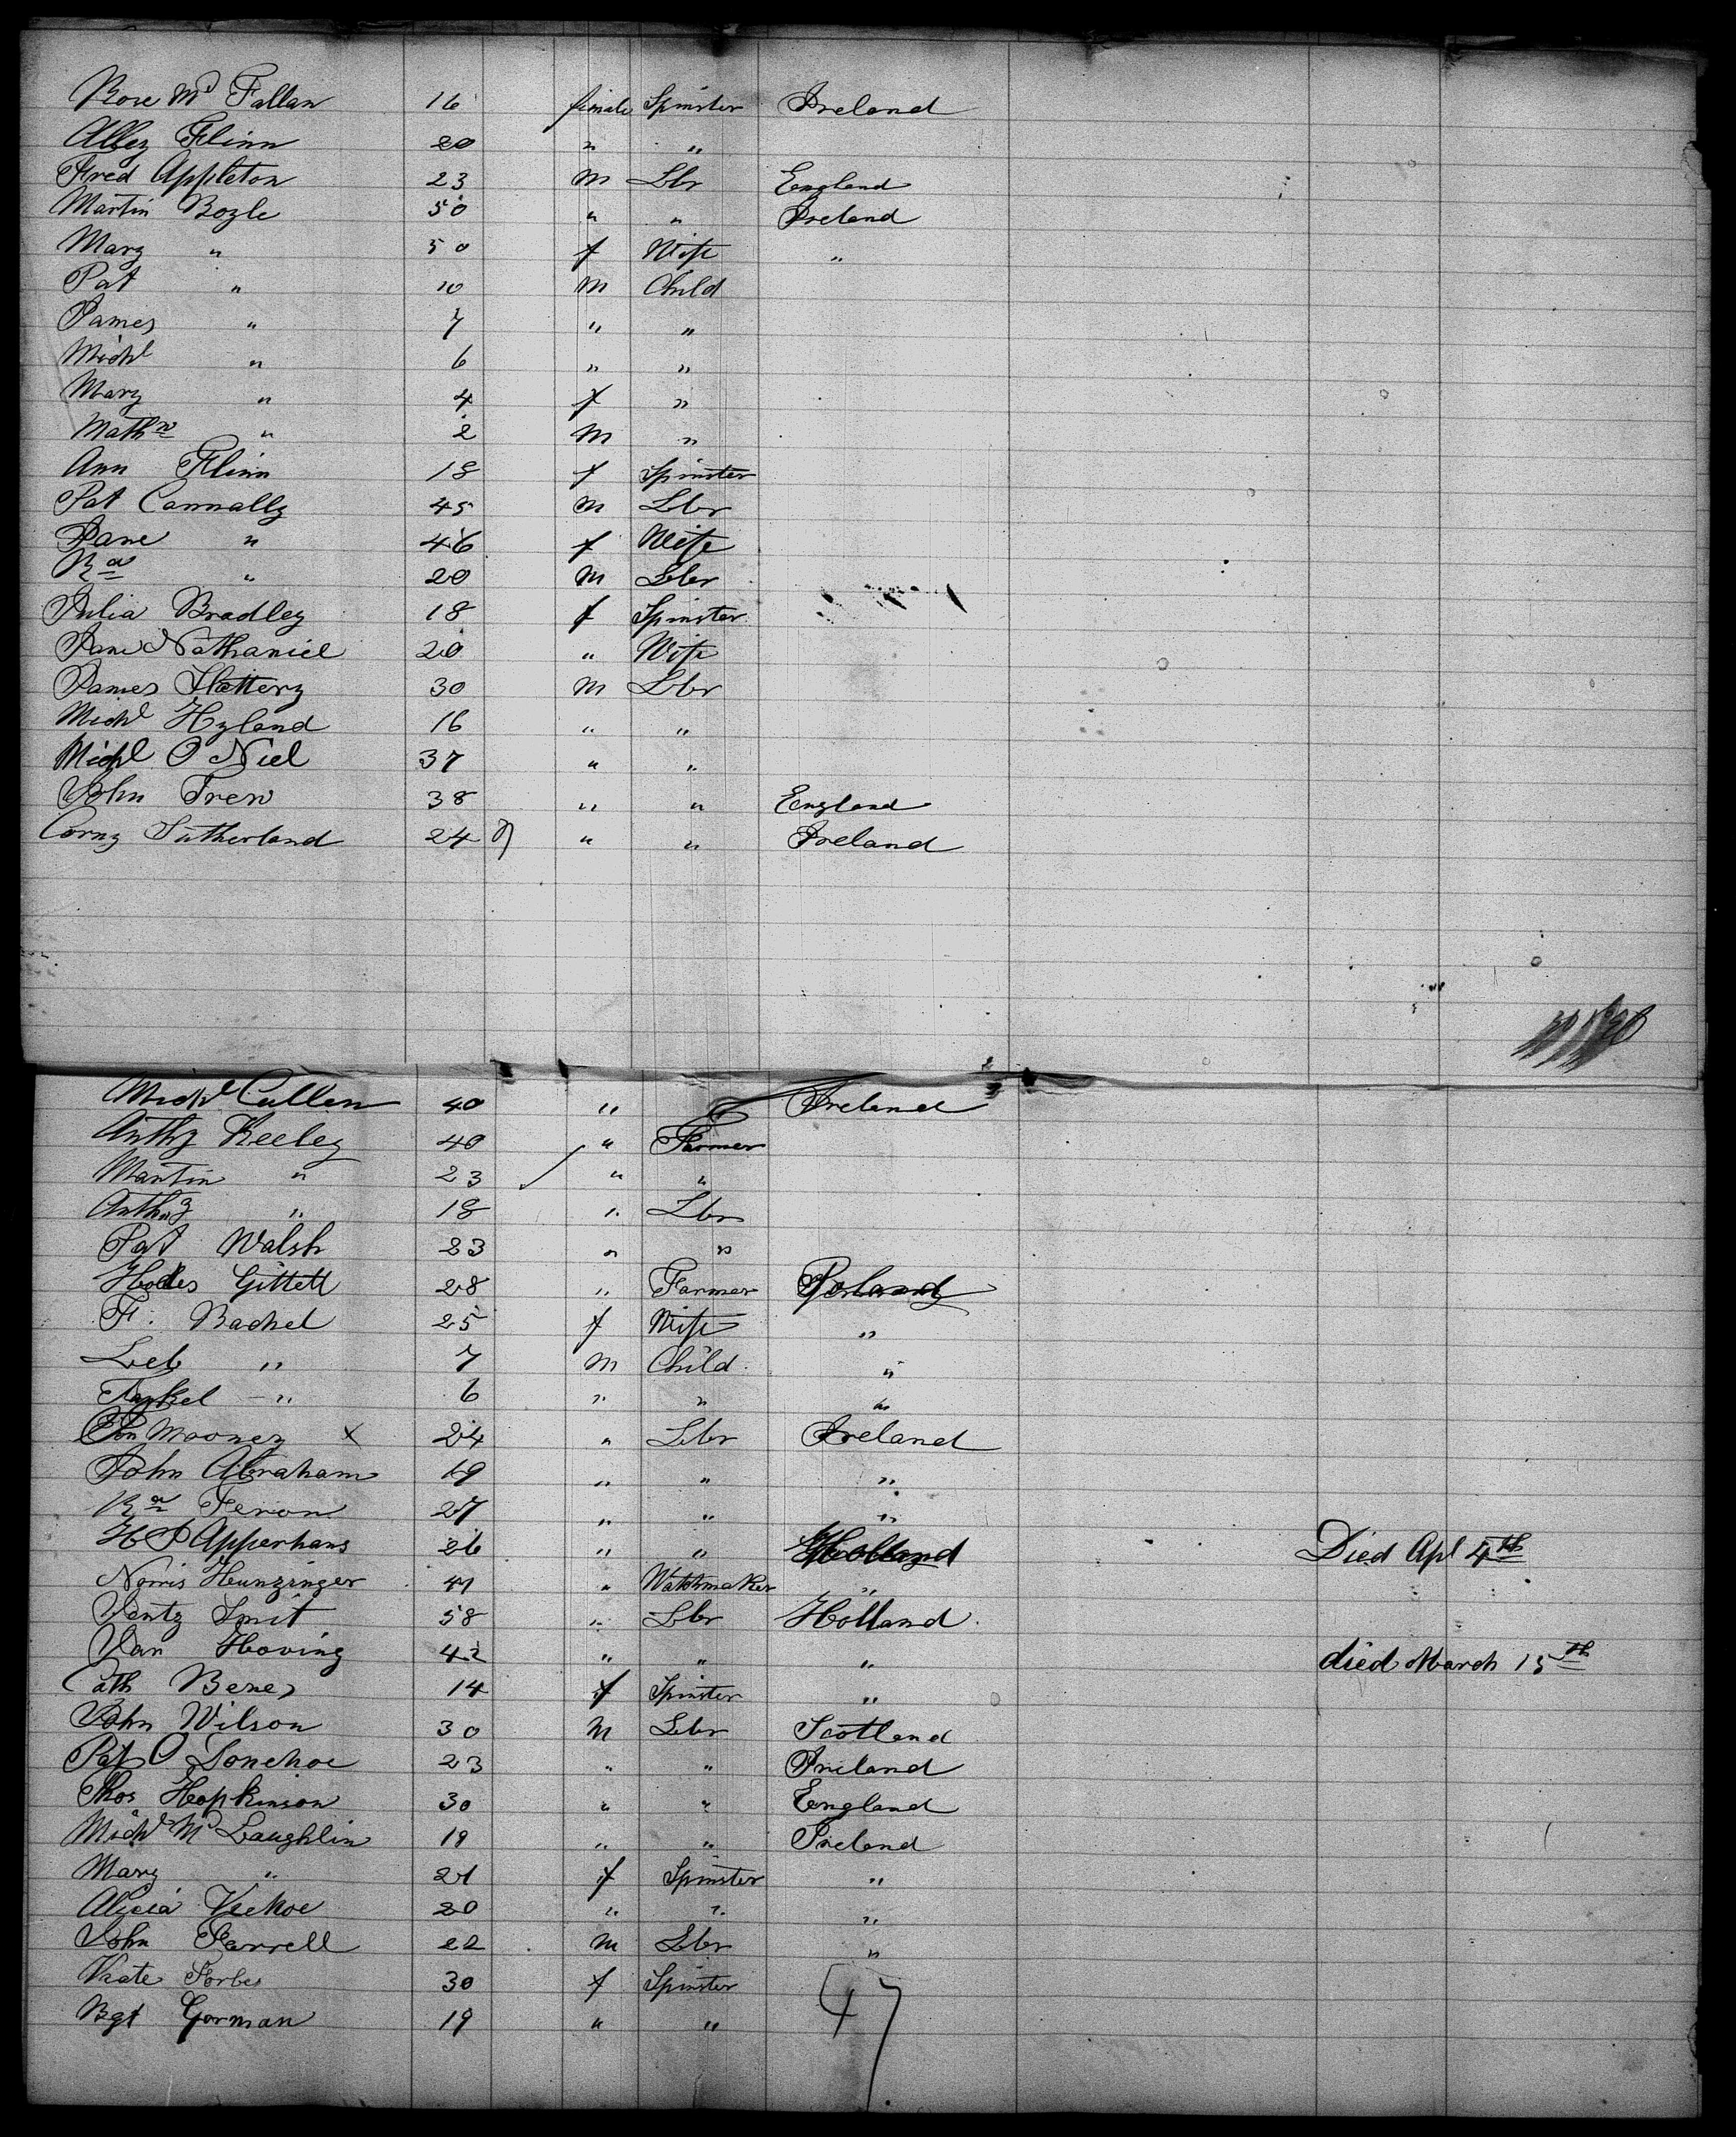 Rose Mc Fallan 16 female Spinster Ireland
Abbey Flinn 20 " "
Fred Appleton 23 M Lbr England
Martin Boyle 50 " " Ireland
Mary " 50 f Wife "
Pat " 10 M Child
James " 7 " "
Michl " 6 " "
Mary " 4 f "
Mathw " 2 M "
Ann Flinn 18 f Spinster
Pat Connally 45 M Lbr
Jane " 46 f Wife
Rd " 20 M Lbr
Julia Bradley 18 f Spinster
Jane Nathaniel 20 " Wife
James Slattery 30 M Lbr
Michl Hyland 16 " "
Michl O Niel 37 " "
John Trew 38 " " England
Corny Sutherland 24 " " Ireland
Michl Cullen 40 " Ireland
Anthy Keeley 40 " Farmer
Martin " 23 " "
Anthny " 18 " Lbr
Pat Walsh 23 " "
Gittell 28 " Farmer Poland
F. Rachel 25 f Wife "
Leb " 7 M Child "
" 6 " " "
Mooney X 24 " Lbr Ireland
John Abraham 19 " " "
Rd Feron 27 " " "
H P Apperhans 26 " " Holland Died Apl 4th
Norris Hunzinger 41 " Watchmaker "
Smit 58 " Lbr Holland
Jan Hoving 42 " " " died March 15th
Cath Benes 14 f Spinster "
John Wilson 30 M Lbr Scotland
Pat O Donehoe 23 " " Ireland
Thos Hopkinson 30 " " England
Michl Mc Laughlin 19 " " Ireland
Mary " 21 f Spinster "
Alicia Kehoe 20 " " "
John Farrell 22 M Lbr "
Kate Forbes 30 f Spinster
Bgt Gorman 19 " "
47